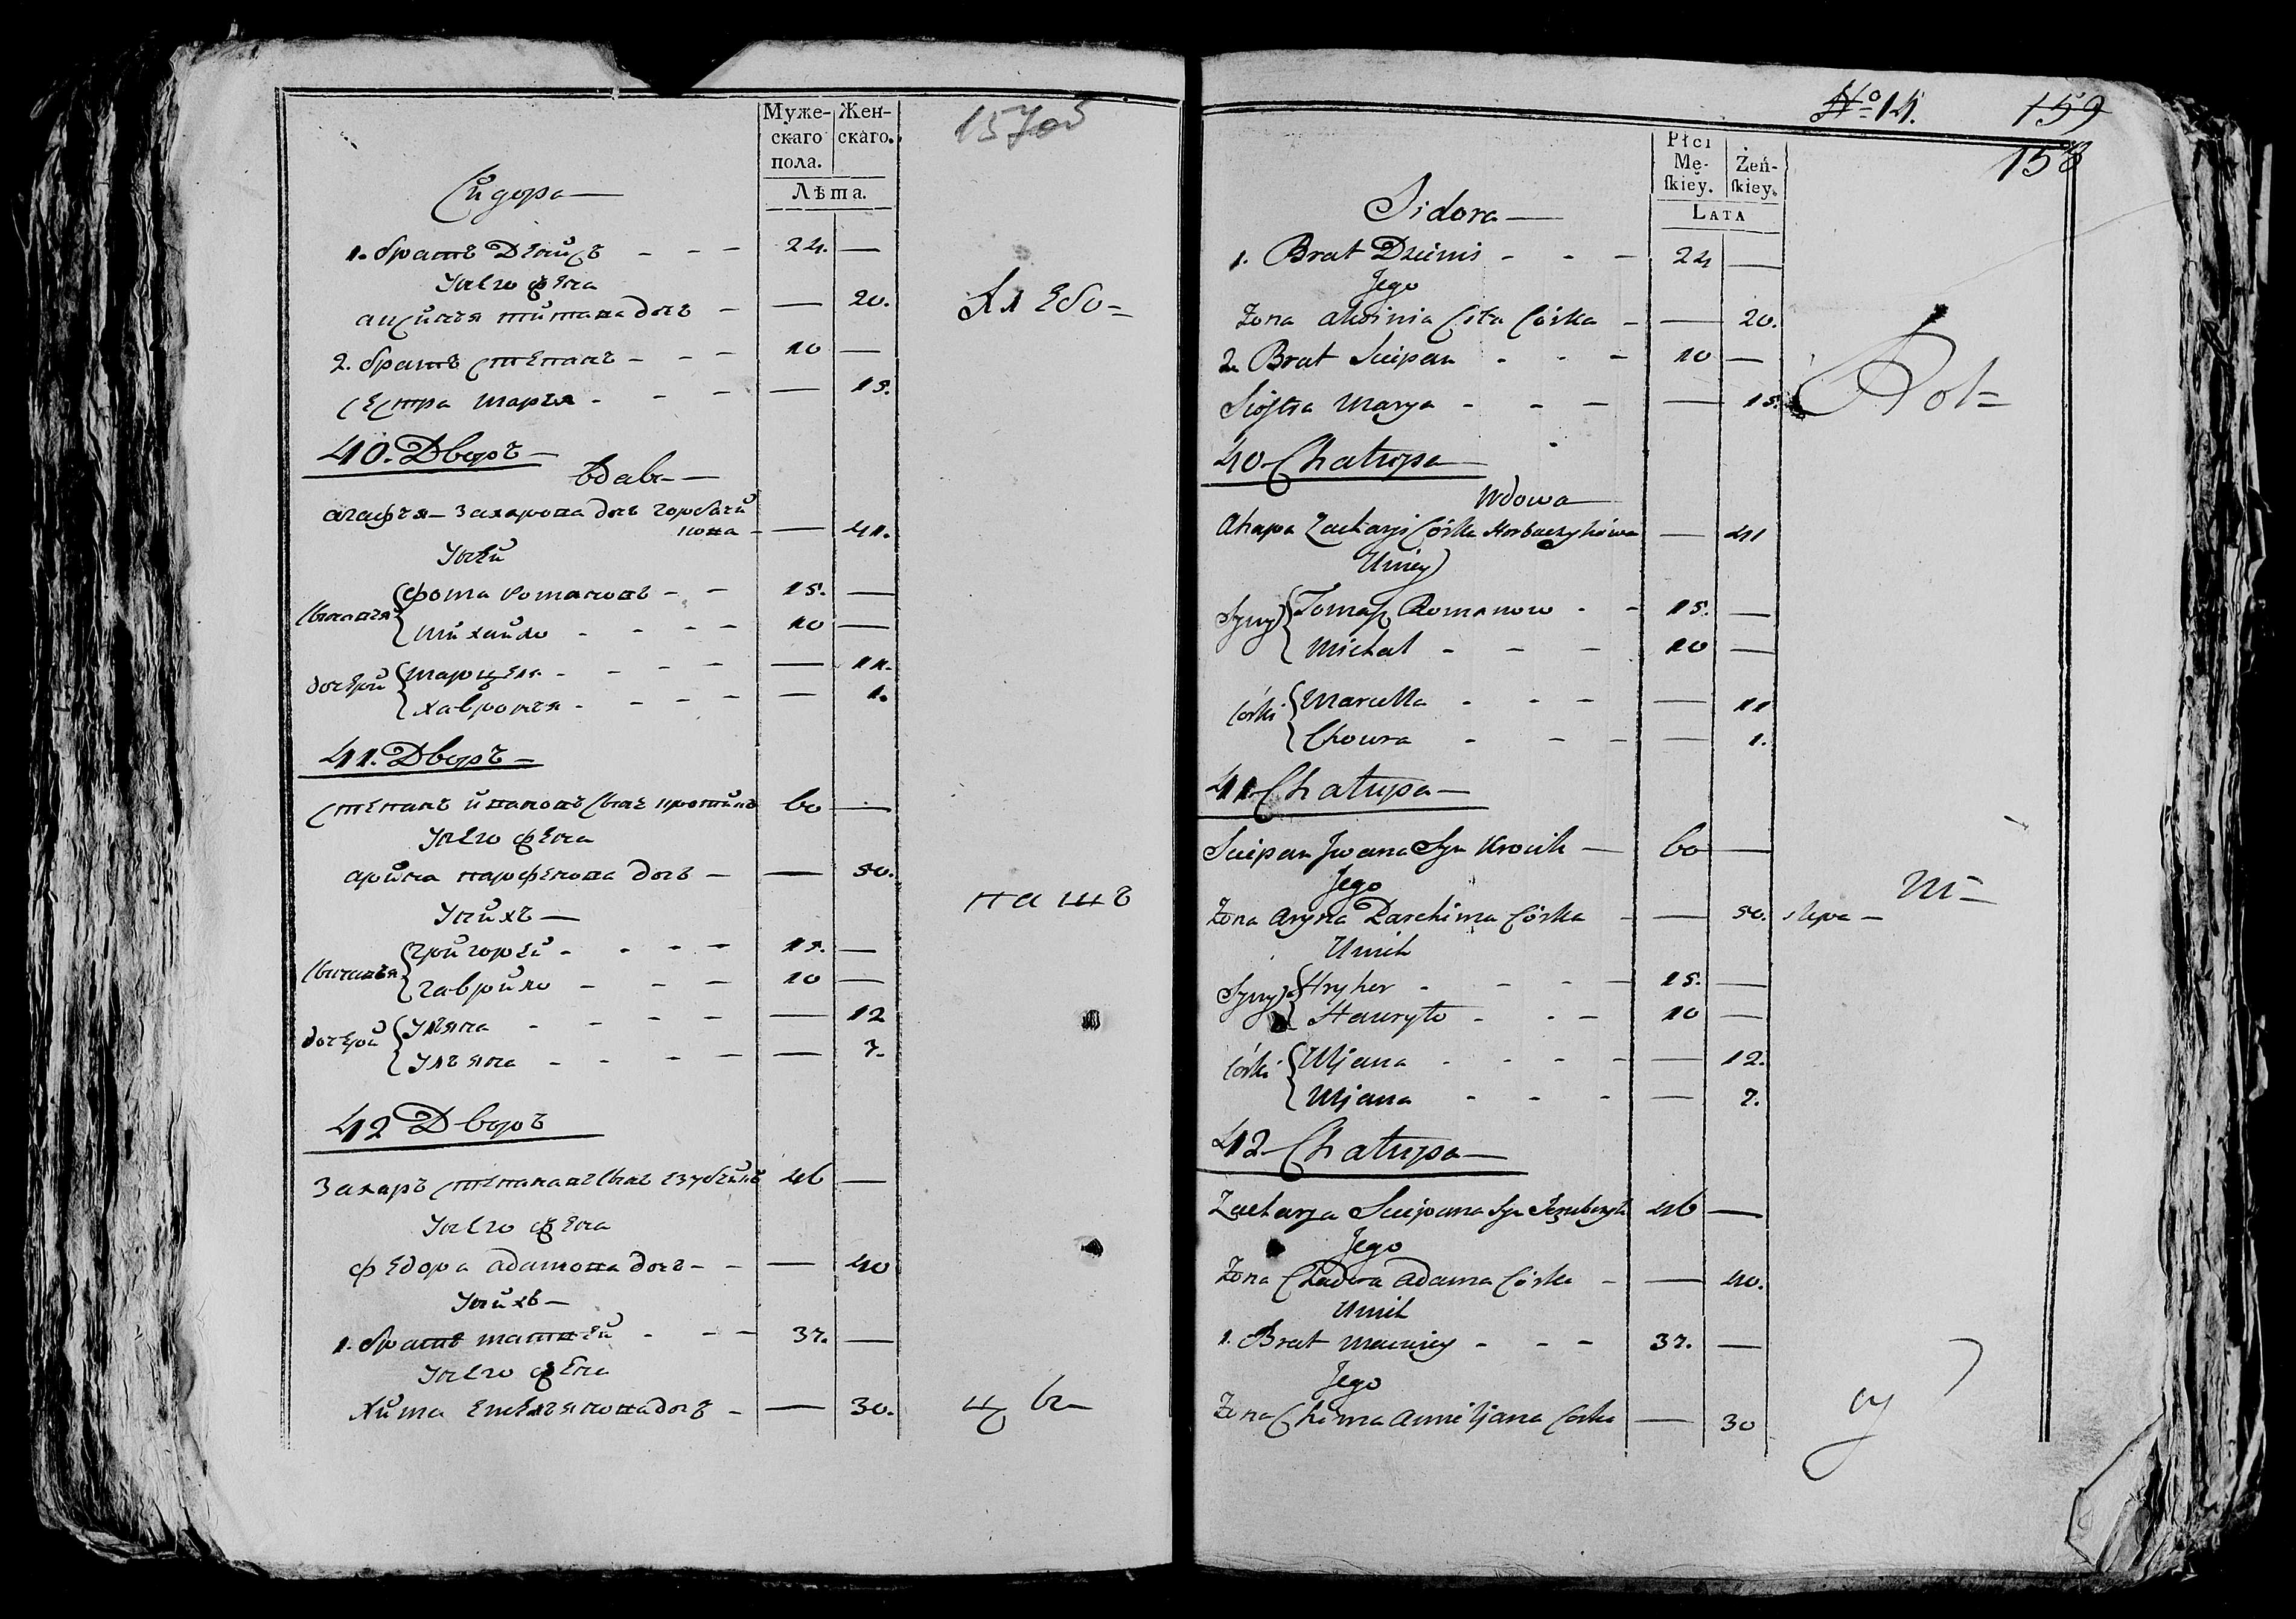 Муже-
скаго
пола.
Жен-
скаго.
Лѣта.
157об
Сидора —
1. братъ Денисъ - - - 24. —
У него жена
аксинья титова дочь - — 20.
Але Ѣо=
2. братъ степанъ - - - 10 —
сестра марья - - - — 15.
40. Дворъ —
вдова —
агафья — Захарова дочь горбачи
кова - — 41.
У ней
сыновья { фома романовъ - - 15. —
михайло - - - - 10 —
дочери { марцеля - - - - — 11.
хавронья - - - - — 1.
41. Дворъ —
степанъ ивановъ сынъ кротикъ 60 —
У него жена
арина парфенова дочь — — 50.
У нихъ —
пашъ
сыновья { григорей - - - - 15. —
гаврило - - - - 10 —
дочери { Ульяна - - - - — 12
Ульяна - - - - — 7.
42 Дворъ
Захаръ степановъ сынъ 46 —
У него жена
федора адамова дочь - - — 40
У нихъ —
1. братъ матвей - - - 37. —
У него жена
хима емельянова дочь - — 30.
№ 14.
159
158
Płci
Mę-
ſkiey.
Żeń-
ſkiey.
LATA
Sidora —
1. Brat Dzienis - - - 24 —
Jego
Zona Awinia Cita Córka - — 20.
2. Brat Sciepan - - - 10 —
Siostra Marya - - - — 15.
Rot=
40. Chatupa —
Wdowa —
Ahapa Zacharji Córka Horbaczykowa — 41
Uniey
Syny { Tomasz Romanow - - 15. —
Michał - - - 10 —
Córki { Marcella - - - — 11
Chowra - - - — 1.
41 Chatupa —
Sciepan Jwana Syn Krocik — 60 —
Jego
Zona Aryna Parchima Córka - — 50. slepa —
M=
Unich
Syny { Hryher - - - - 15. —
Hauryło - - - 10 —
Córki { Uljana - - - - — 12.
Uljana - - - — 7.
42 Chatupa —
Zacharya Sciepana Syn 46 —
Jego
Zona Chadora Adama Córka - — 40.
Unich
1. Brat Maciey - - - 37. —
Jego
Zona Chima Amiljana Corka — 30